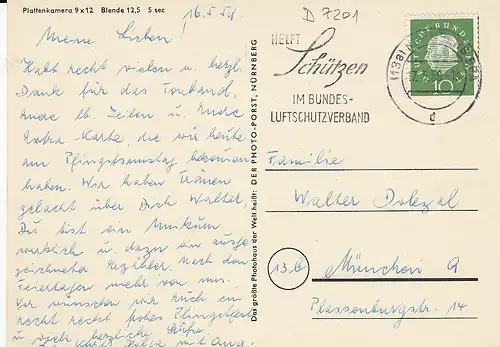 Plattenkamera 9 x 12 Blende 12,5 5 sec
16.5.59
D 7201
Meine Lieben!
Habt recht vielen u. herzl.
Dank für das Tonband,
Eure lb. Zeilen u. Eure
Extra Karte, die wir heute
am Pfingstsamstag bekommen
haben. Wir haben Tränen
gelacht über Dich Walter,
Du bist ein Unikum
wirklich u. dazu ein ausge
zeichneter Erzähler. Nach den
Feiertagen mehr von uns.
Wir wünschen nur Euch ein
recht recht frohes Pfingstfest
u. viele herzliche Grüße.
Das größte Photohaus der Welt heißt: DER PHOTO-PORST, NÜRNBERG
HELFT
Schützen
IM BUNDES-
LUFTSCHUTZVERBAND
DEUTSCHE BUNDESPOST
10
(13a)
d
Familie
Walter Dolezal
13b
München 9
Plassenburgstr. 14